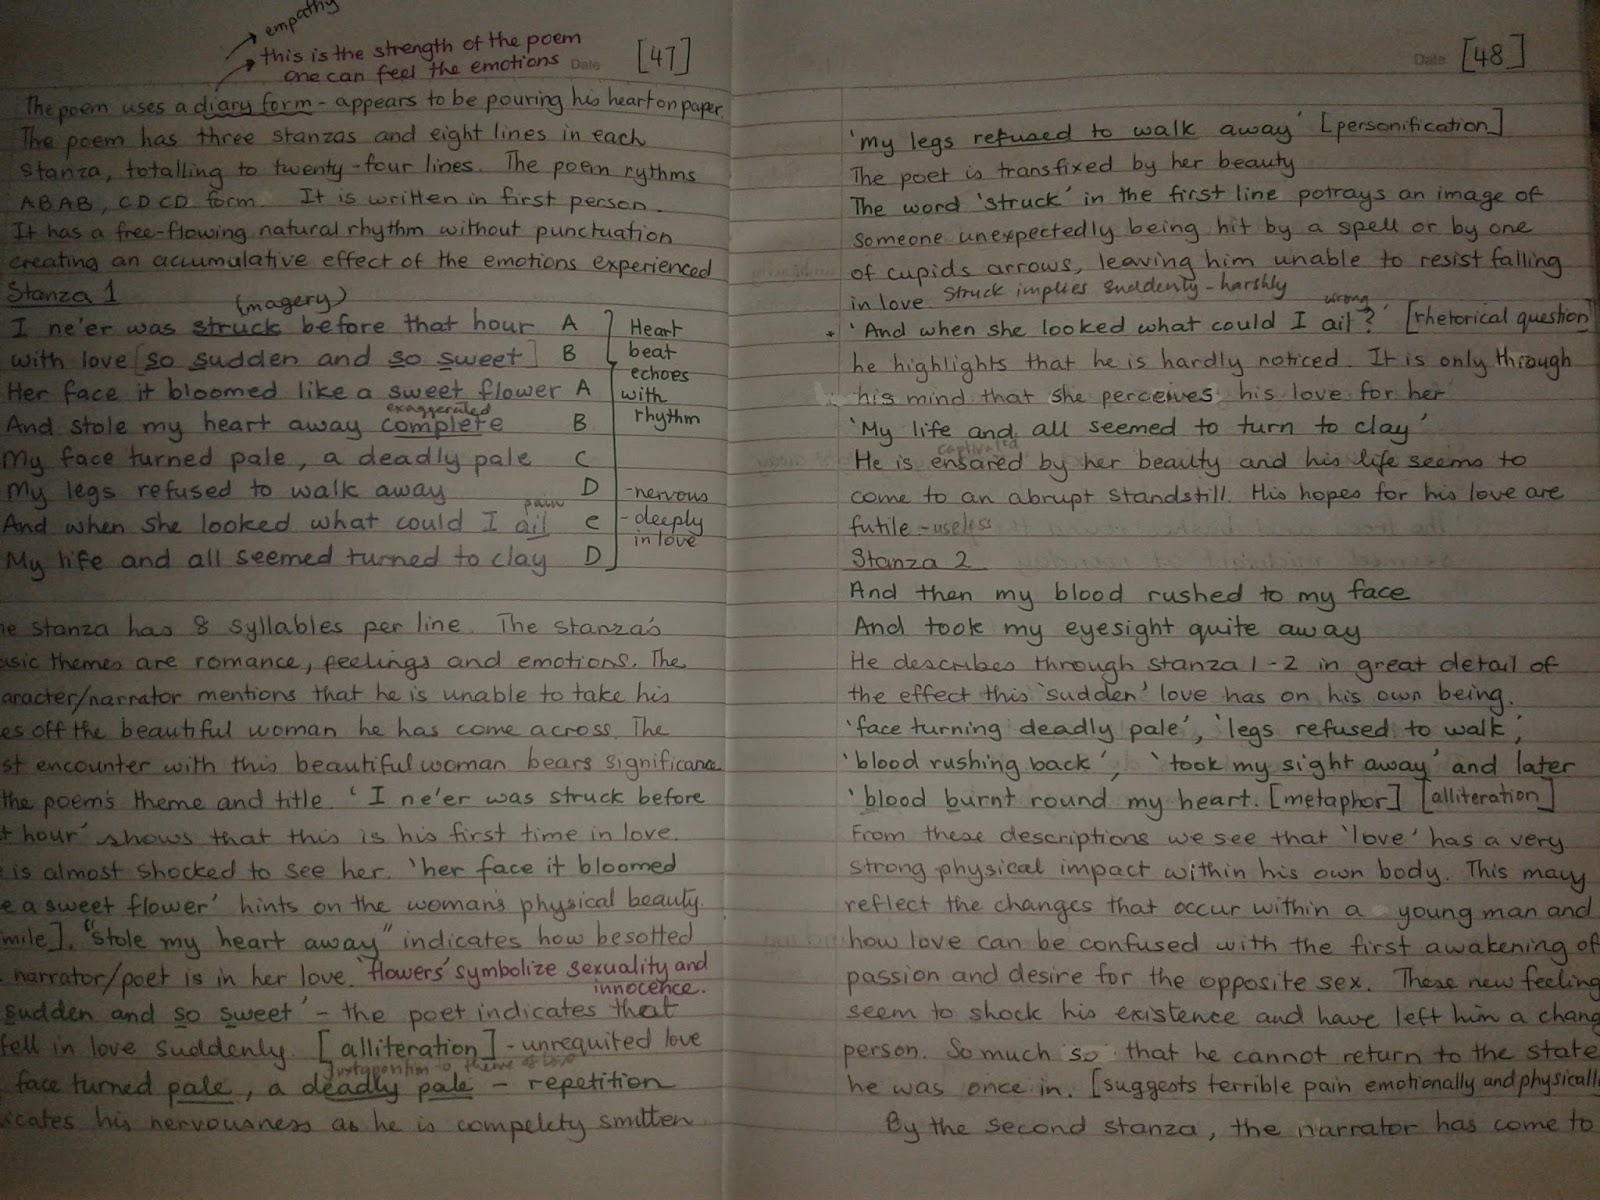 empathy
this is the strength of the poem
one can feel the emotions
Date
[47]
The poem uses a diary form - appears to be pouring his heart on paper.
The poem has three stanzas and eight lines in each
stanza, totalling to twenty-four lines. The poem rythms
ABAB, CDCD form. It is written in first person.
It has a free-flowing natural rhythm without punctuation
creating an accumulative effect of the emotions experienced
Stanza 1
(magery)
I ne'er was struck before that hour A
with love [so sudden and so sweet] B
Her face it bloomed like a sweet flower A
exaggerated
And stole my heart away complete B
My face turned pale, a deadly pale C
My legs refused to walk away D
pain
And when she looked what could I ail e
My life and all seemed turned to clay D
Heart
beat
echoes
with
rhythm
-nervous
-deeply
in love
stanza has 8 syllables per line. The stanza's
themes are romance, feelings and emotions. The
aracter/narrator mentions that he is unable to take his
es off the beautiful woman he has come across. The
st encounter with this beautiful woman bears significance
the poem's theme and title. 'I ne'er was struck before
t hour' shows that this is his first time in love.
is almost shocked to see her. 'her face it bloomed
e a sweet flower' hints on the woman's physical beauty.
mile]. "stole my heart away" indicates how besotted
narrator/poet is in her love. 'flowers' symbolize sexuality and
innocence.
sudden and so sweet' - the poet indicates that
fell in love suddenly. [alliteration] - unrequited love
Juxtaposition to theme of love
face turned pale, a deadly pale - repetition
icates his nervousness as he is compelety smitten
Date
[48]
'my legs refused to walk away' [personification]
The poet is transfixed by her beauty
The word 'struck' in the first line potrays an image of
someone unexpectedly being hit by a spell or by one
of cupids arrows, leaving him unable to resist falling
in love. Struck implies suddenly - harshly
wrong
* 'And when she looked what could I ail?' [rhetorical question
he highlights that he is hardly noticed. It is only through
his mind that she perceives his love for her
'My life and all seemed to turn to clay'
captivated
He is ensared by her beaulty and his life seems to
come to an abrupt standstill. His hopes for his love are
futile - useless
Stanza 2
And then my blood rushed to my face
And took my eyesight quite away
He describes through stanza 1-2 in great detail of
the effect this 'sudden' love has on his own being.
'face turning deadly pale', 'legs refused to walk',
'blood rushing back', 'took my sight away' and later
'blood burnt round my heart. [metaphor] [alliteration]
From these descriptions we see that 'love' has a very
strong physical impact within his own body. This may
reflect the changes that occur within a young man and
how love can be confused with the first awakening of
passion and desire for the opposite sex. These new feeling
seem to shock his existence and have left him a chang
person. So much so that he cannot return to the state
he was once in. [suggests terrible pain emotionally and physicall
By the second stanza, the narrator has come to